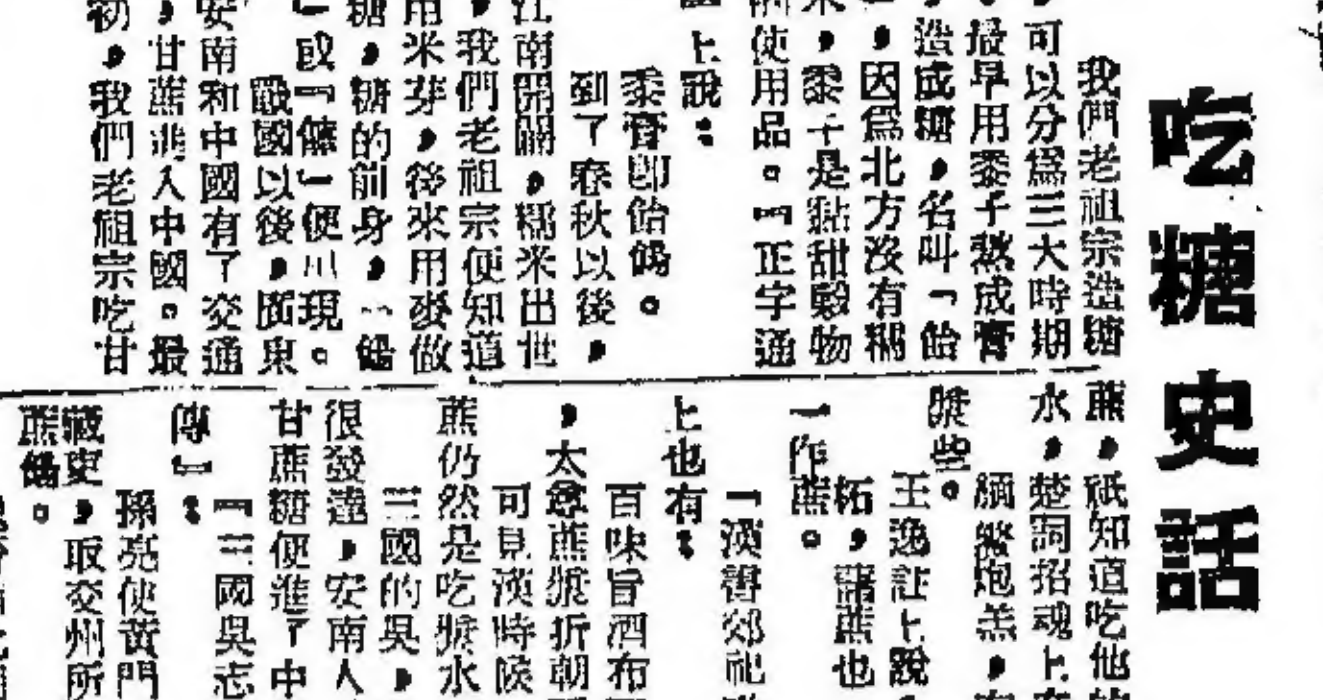 吃糖史話
我們老祖宗造糖
,可以分爲三大時期
。最早用黍子熬成膏
造成糖,名叫「飴
,因爲北方沒有糯
米,黍子是黏甜穀物
的使用品。『正字通
上說:
黍膏卽飴餳。
到了春秋以後,
江南開闢,糯米出世
,我們老祖宗便知道
用米芽,後來用麥做
糖,糖的前身,「餳
」或『餹」便出現。
戰國以後,廣東
安南和中國有了交通
,甘蔗進入中國。最
初,我們老祖宗吃甘
蔗,祇知道吃他的
水,楚詞招魂上
胹鼈炮羔,
漿些。
王逸註上說
柘,藷蔗也
一作蔗。
『漢書郊祀
上也有:
百味旨酒布
,太尊蔗漿折朝
可見漢時候
蔗仍然是吃漿水
三國的吳,
很發達,安南人
甘蔗糖便進了中
『三國吳志
傳』:
孫亮使黃門
藏吏,取交州所
蔗餳。